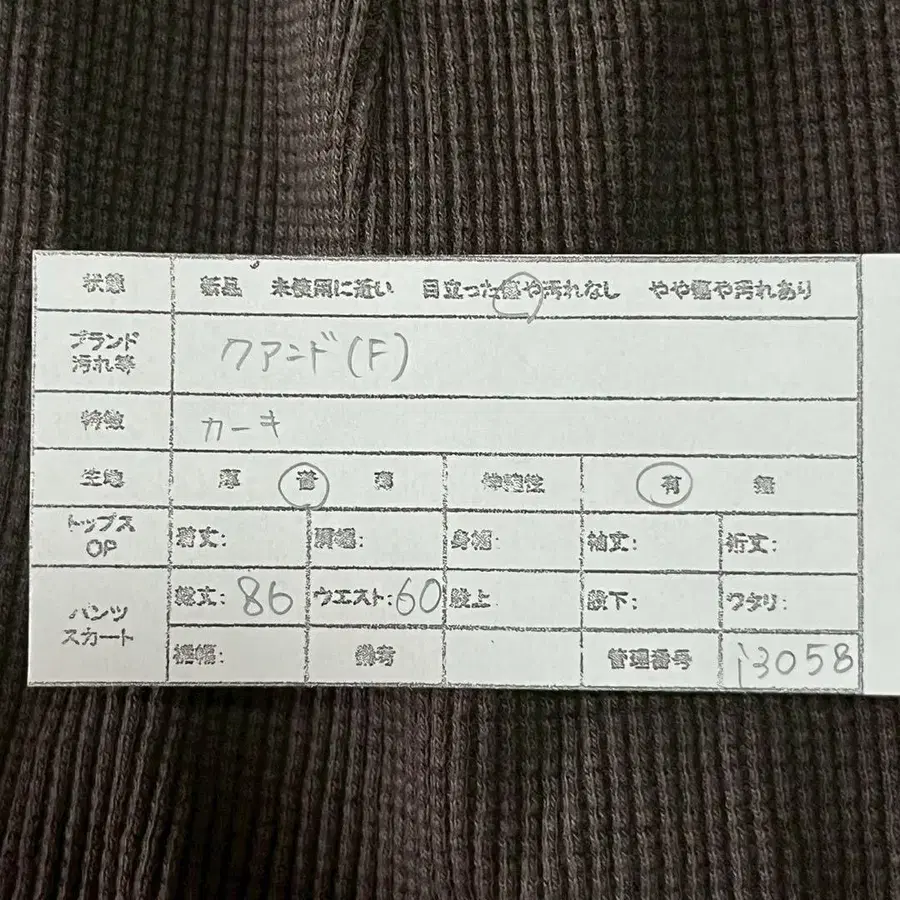 状態 新品 未使用に近い 目立った傷や汚れなし やや傷や汚れあり
ブランド
汚れ等 クアンド(F)
特徴 カーキ
生地 厚 普 薄 伸縮性 有 無
トップス
OP 着丈: 肩幅: 身幅: 袖丈: 裄丈:
パンツ
スカート 総丈: 86 ウエスト: 60 股上 股下: ワタリ:
裾幅: 備考 管理番号 i3058